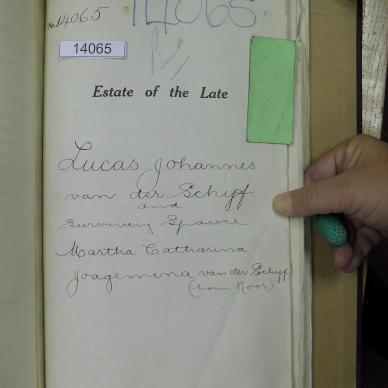 No. 14065
14065
14065
Estate of the Late
Lucas Johannes
van der Schyff
and
Surviving Spouse
Martha Catharina
Joagemena van der Schyff
(born Roos)